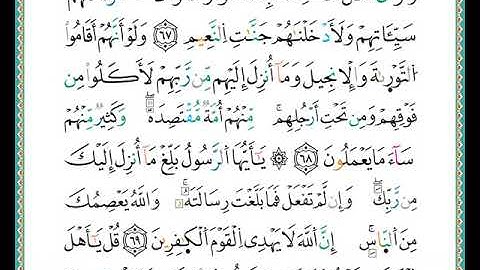 سَيِّـَٔاتِهِمْ وَلَأَدْخَلْنَٰهُمْ جَنَّٰتِ ٱلنَّعِيمِ ٦٧ وَلَوْ أَنَّهُمْ أَقَامُوا۟
ٱلتَّوْرَىٰةَ وَٱلْإِنجِيلَ وَمَآ أُنزِلَ إِلَيْهِم مِّن رَّبِّهِمْ لَأَكَلُوا۟ مِن
فَوْقِهِمْ وَمِن تَحْتِ أَرْجُلِهِمۚ مِّنْهُمْ أُمَّةٌ مُّقْتَصِدَةٌۖ وَكَثِيرٌ مِّنْهُمْ
سَآءَ مَا يَعْمَلُونَ ٦٨ ۞ يَٰٓأَيُّهَا ٱلرَّسُولُ بَلِّغْ مَآ أُنزِلَ إِلَيْكَ
مِن رَّبِّكَۖ وَإِن لَّمْ تَفْعَلْ فَمَا بَلَّغْتَ رِسَالَتَهُۥۚ وَٱللَّهُ يَعْصِمُكَ
مِنَ ٱلنَّاسِۗ إِنَّ ٱللَّهَ لَا يَهْدِى ٱلْقَوْمَ ٱلْكَٰفِرِينَ ٦٩ قُلْ يَٰٓأَهْلَ